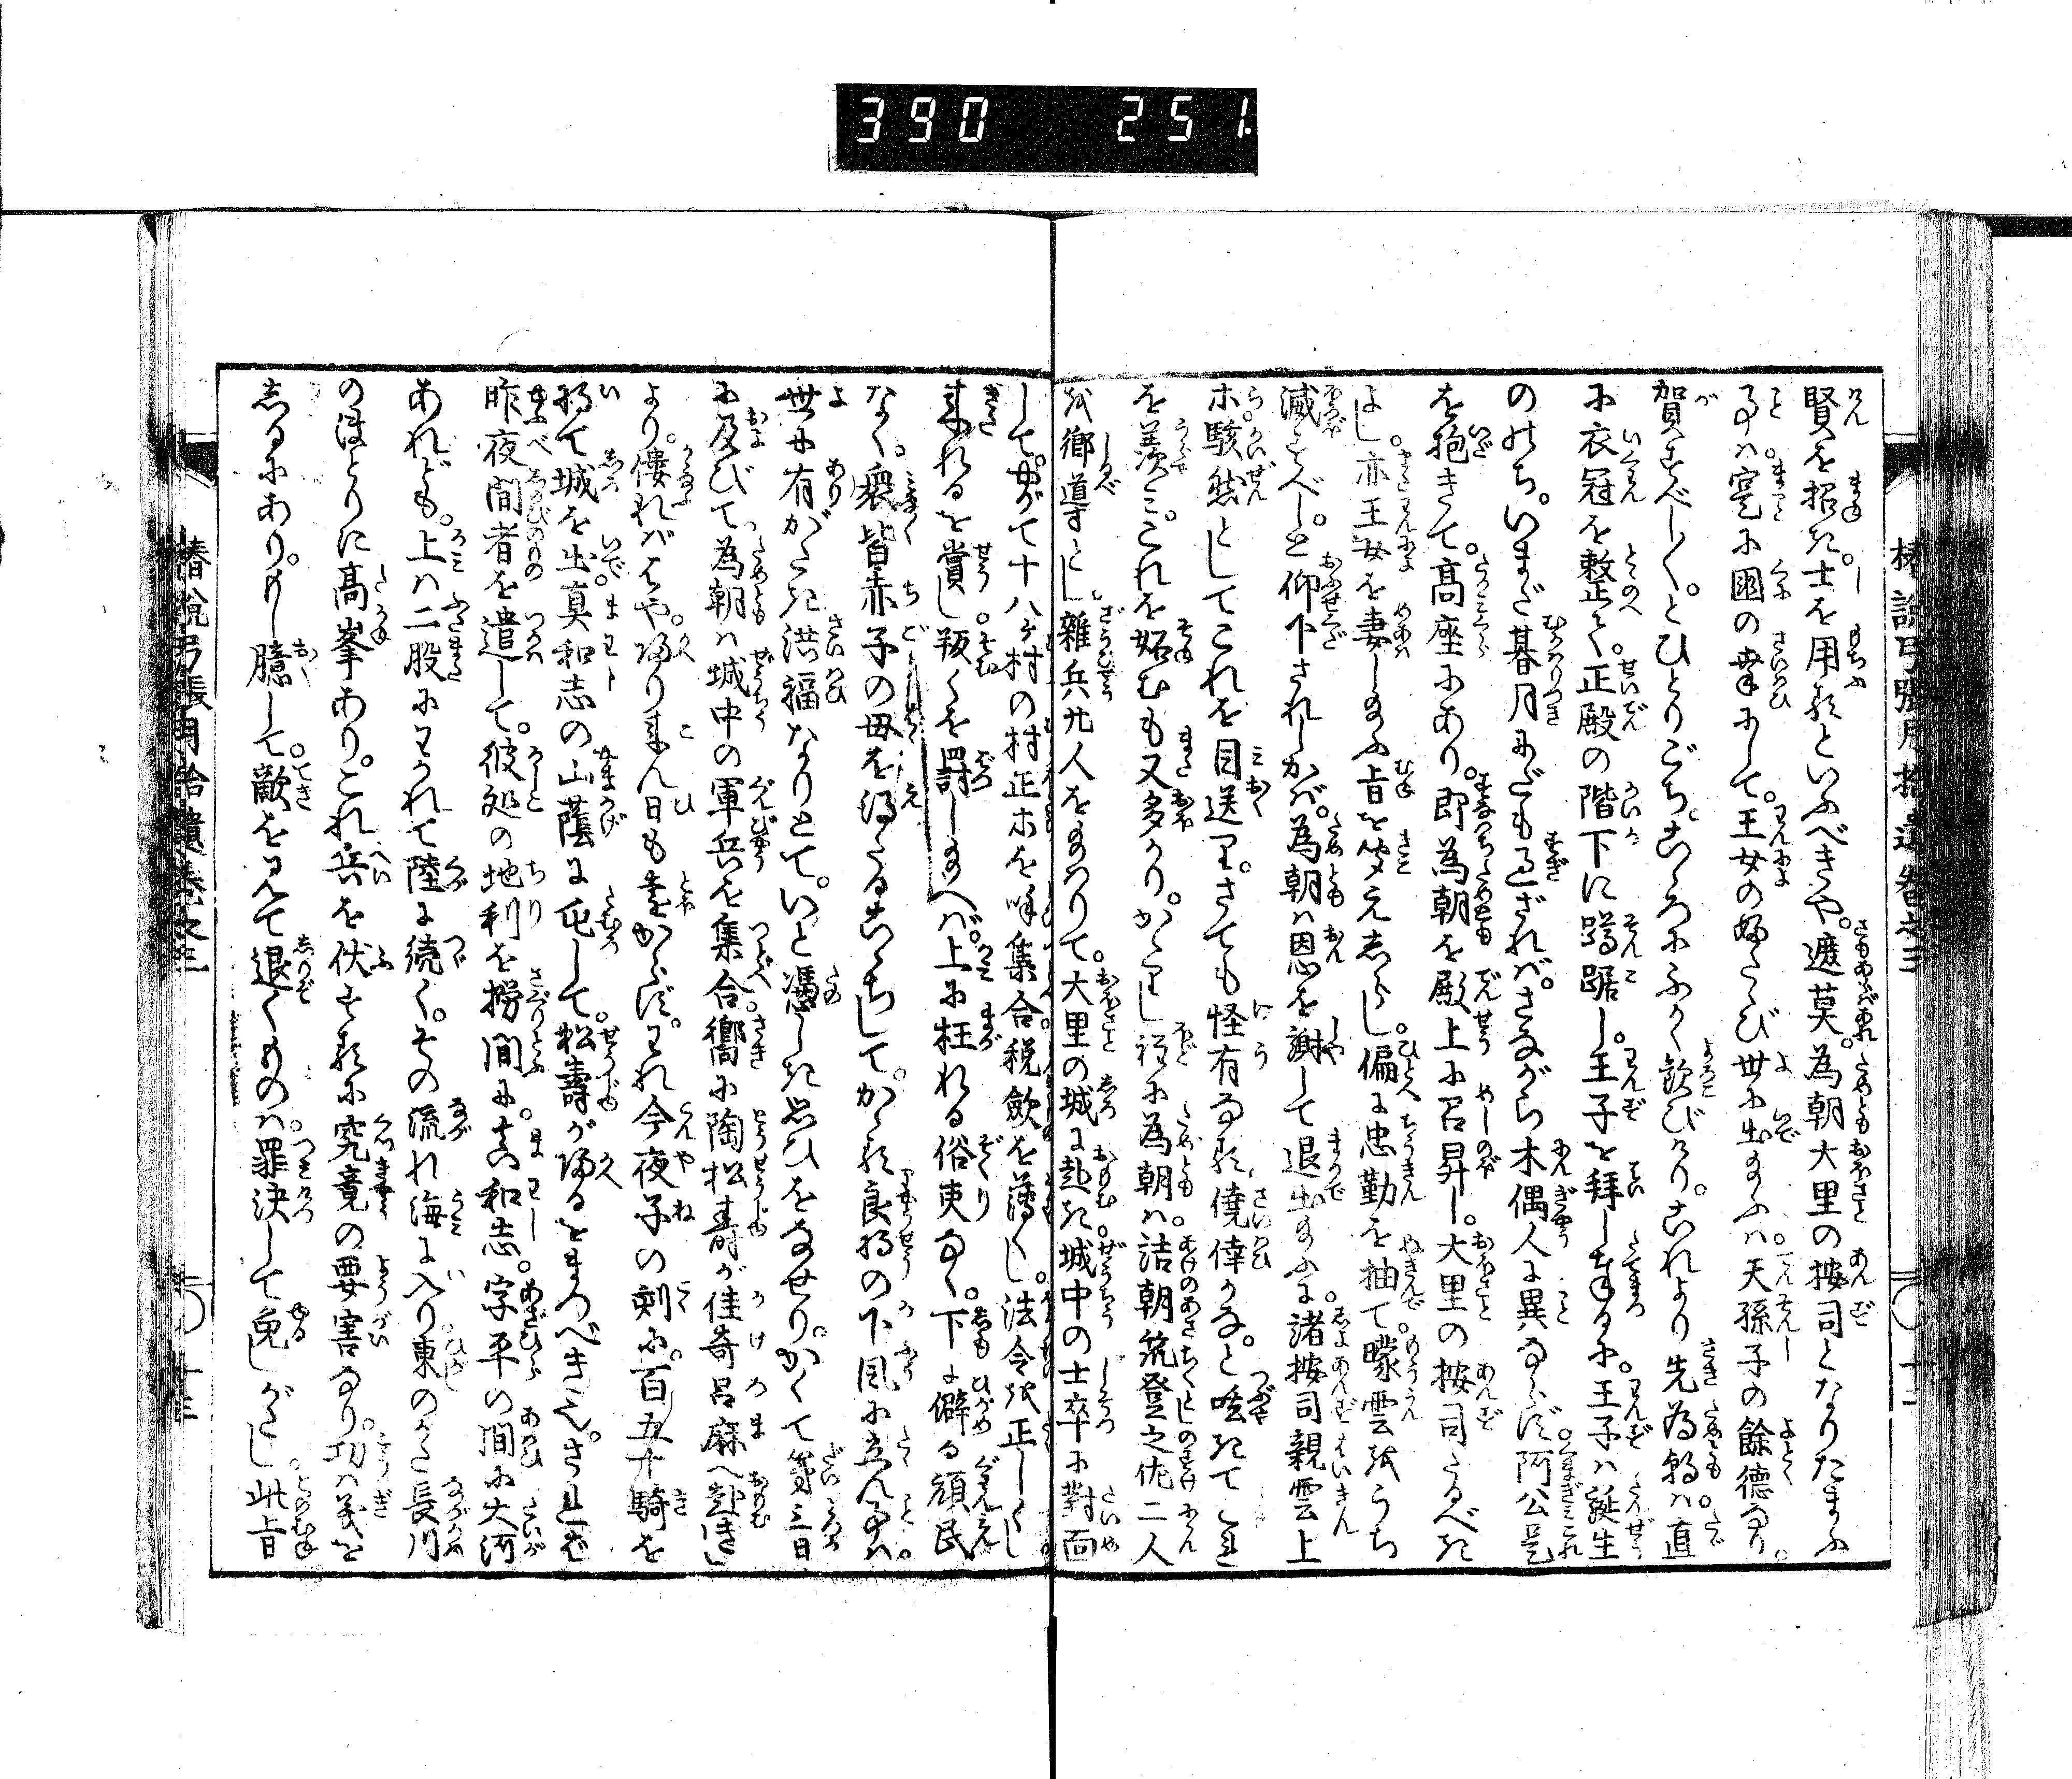 390 251
椿説弓張月拾遺巻之三
賢を招き。士を用るといふべきや。遮莫。為朝大里の按司となりたまふ
事は。寔に國の幸にして。王女の再び世に出給ふは。天孫子の餘徳なり。
賀すべし〳〵。とひとりごち。こゝろにふかく歓びけり。これより先為朝は。直
に衣冠を整て。正殿の階下に蹲踞し。王子を拝し奉るに。王子は誕生
ののち。いまだ碁月にだも過ざれば。さながら木偶人に異ならず。阿公是
を抱きて。高座にあり。即為朝を殿上に召昇し。大里の按司たるべき
よし。亦王女を妻し給ふ旨を聞えしらし。偏に忠勤を抽て。矇雲をうち
滅すべし。と仰下されしかば。為朝は恩を謝して退出給ふに。諸按司親雲上
ホ駭然としてこれを目送り。さても怪有なる僥倖かな。と呟きてこれ
を羨み。これを妬むも又多かり。かゝりし程に為朝は。詰朝筑登之佐二人
を郷導とし。雑兵九人をまゐりて。大里の城に赴き。城中の士卒に對面
して。やがて十八ヶ村の村正ホを呼集合。税斂を薄くし。法令を正しくし
来れるを賞し。叛くを罸し給へば。上に枉れる俗吏なく。下に僻る頑民
なく。衆皆赤子の母を得たるこゝちして。かゝる良將の下風に立ん事は。
世に有がたき洪福なりとて。いと憑しき思ひをなせり。かくて第三日
に及びて。為朝は城中の軍兵を集合。嚮に陶松壽が佳奇呂麻へ赴き
より。僂ればはや。帰り来ん日も遠からず。われ今夜子の刻に。百五十騎を
將て城を出。真和志の山蔭に屯して。松壽が帰るをまつべきなり。されば
昨夜間者を遣して。彼処の地利を撈間に。真和志。字平の間に大河
あれども。上は二股にわかれて陸に続く。その流れ海に入り。東のかた長川
のほとりに高峯あり。これ兵を伏するに究竟の要害なり。功は義を
しるにあり。もし臆して。敵を見て退くものは。罪決して免しがたし。此旨
椿説弓張月拾遺巻之三